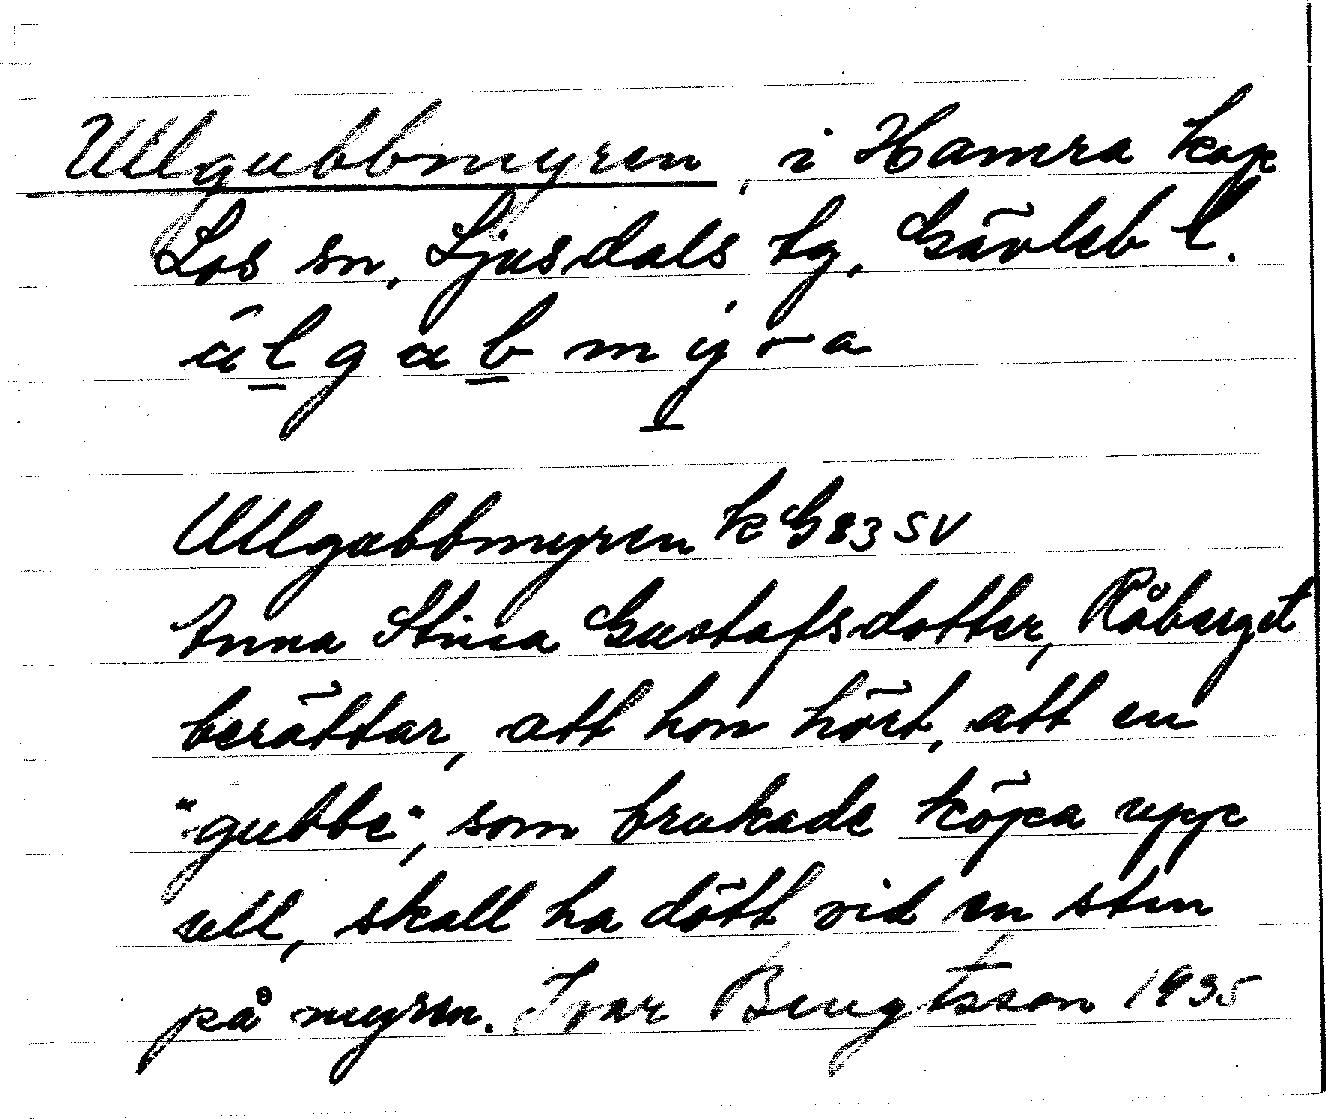 Ullgubbmyren, i Hamra kap
Los sn, Ljusdals tg, Gävleb l.
Ullgubbmyren kG83SV
Anna Stina Gustafsdotter, Råberget
berättar, att hon hört, att en
"gubbe", som brukade köpa upp
ull, skall ha dött vid en sten
på myren. Ivar Bengtsson 1935